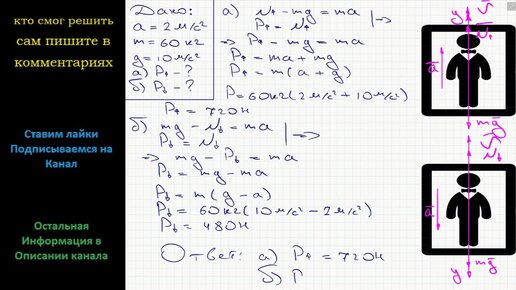 кто смог решить
сам пишите в
комментариях
Ставим лайки
Подписываемся на
Канал
Остальная
Информация в
Описании канала
Дано:
a = 2 м/с²
m = 60 кг
g = 10 м/с²
а) P↑ - ?
б) P↓ - ?
а) N↑ - mg = ma
P↑ = N↑
|⇒
⇒ P↑ - mg = ma
P↑ = ma + mg
P↑ = m(a + g)
P = 60 кг(2 м/с² + 10 м/с²)
P↑ = 720 Н
б) mg - N↓ = ma
P↓ = N↓
|⇒
⇒ mg - P↓ = ma
P↓ = mg - ma
P↓ = m(g - a)
P↓ = 60 кг(10 м/с² - 2 м/с²)
P↓ = 480 Н
Ответ: а) P↑ = 720 Н
б) P
y
N↑
a
mg
N↓
a
y
mg